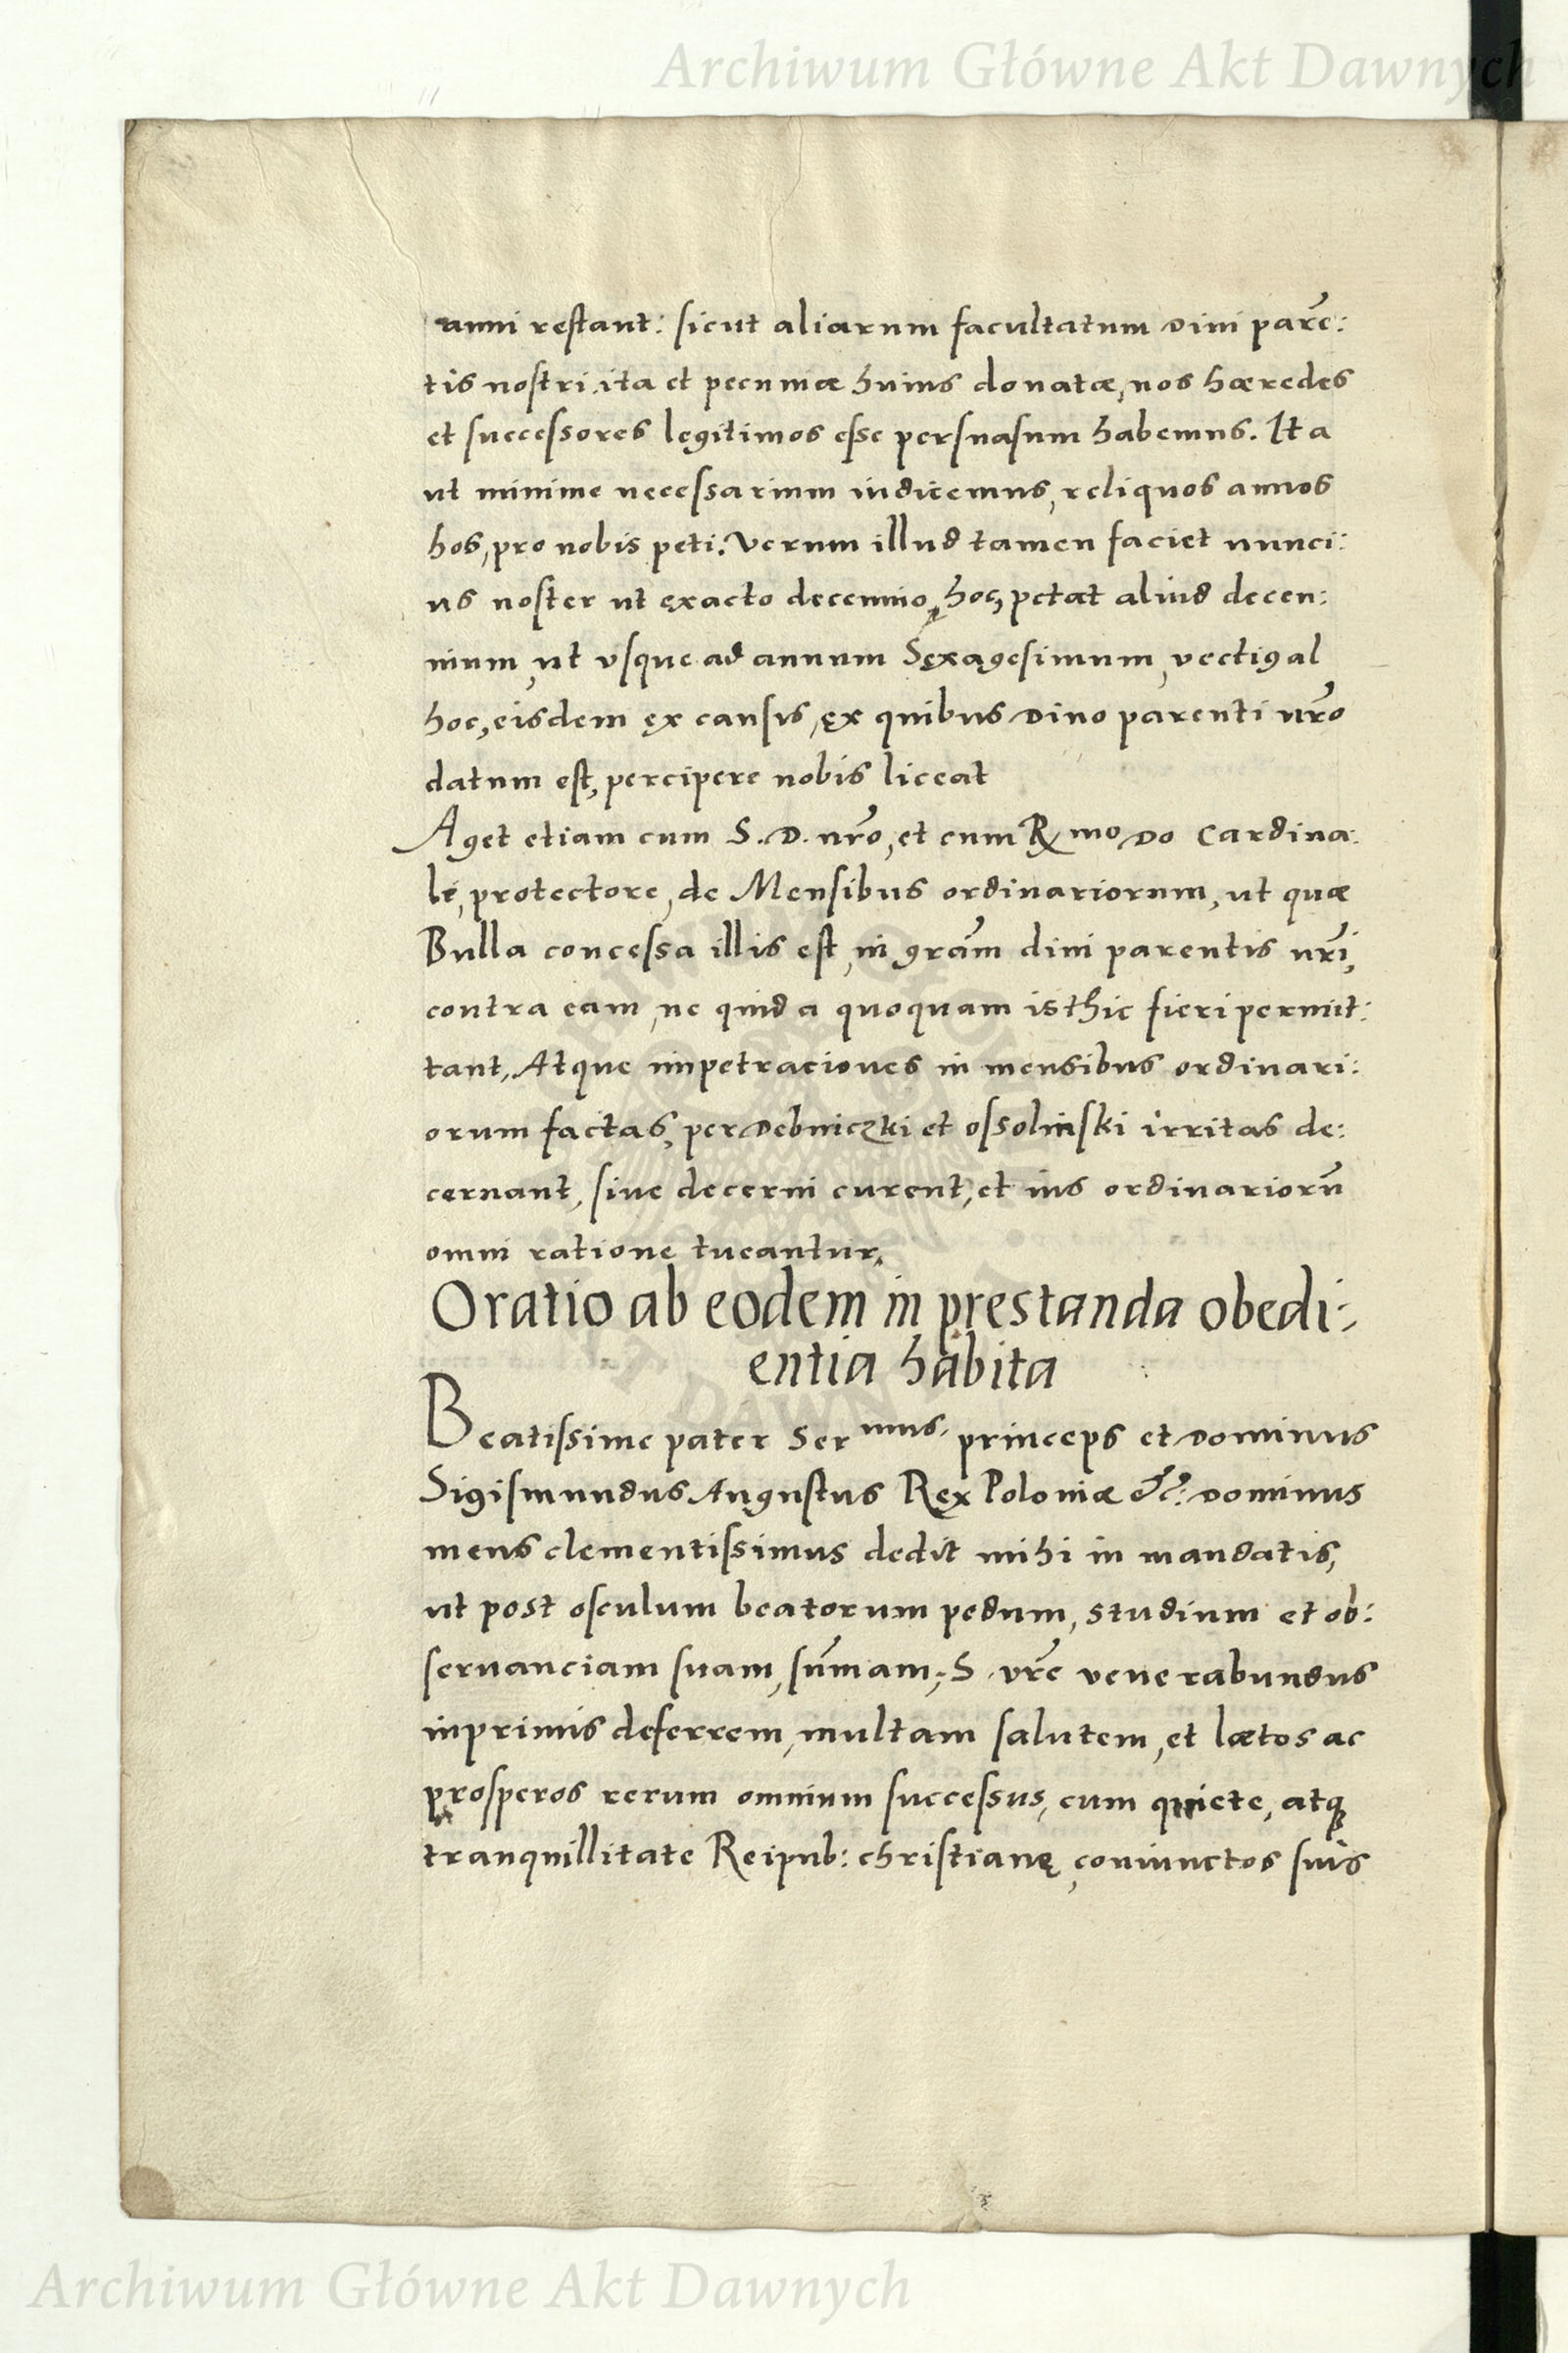 Archiwum Główne Akt Dawnych
anni restant: sicut aliarum facultatum Diui parẽ:
tis nostri, ita et pecuniæ huius donatæ, nos hæredes
et successores legitimos esse persuasum habemus. Ita
ut minime necessarium iudicemus, reliquos annos
hos, pro nobis peti. Verum illud tamen faciet nunci:
us noster ut exacto decennio, hoc, petat aliud decen:
nium, ut vsque ad annum Sexagesimum, vectigal
hoc, eisdem ex causis, ex quibus Diuo parenti nr̃o
datum est, percipere nobis liceat
Aget etiam cum S. D. nr̃o, et cum R mo Do Cardina:
le, protectore, de Mensibus ordinariorum, ut quæ
Bulla concessa illis est, in grãm diui parentis nr̃i,
contra eam, ne quid a quoquam isthic fieri permit:
tant, Atque impetraciones in mensibus ordinari:
orum factas, per Debniczki et ossolinski irritas de:
cernant, siue decerni curent, et ius ordinariorũ
omni ratione tueantur.
Oratio ab eodem in prestanda obedi:
entia habita
Beatissime pater Ser mus. princeps et Dominus
Sigismundus Augustus Rex Poloniæ &c: Dominus
meus clementissimus dedit mihi in mandatis,
ut post osculum beatorum pedum, studium et ob:
seruanciam suam, sum̃am, S. vr̃e venerabundus
inprimis deferrem, multam salutem, et lætos ac
prosperos rerum omnium successus, cum quiete, atq
tranquillitate Reipub: christianę, coniunctos suis
Archiwum Główne Akt Dawnych